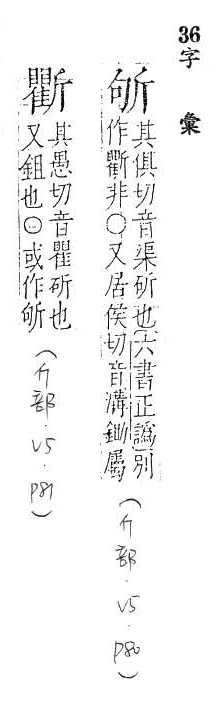 36字彙
斪
其俱切音渠斫也六書正譌別
作斸非○又居侯切音溝鋤屬
(斤部.V5.P80)
斸
其愚切音瞿斫也
又鉏也○或作斪
(斤部.V5.P81)